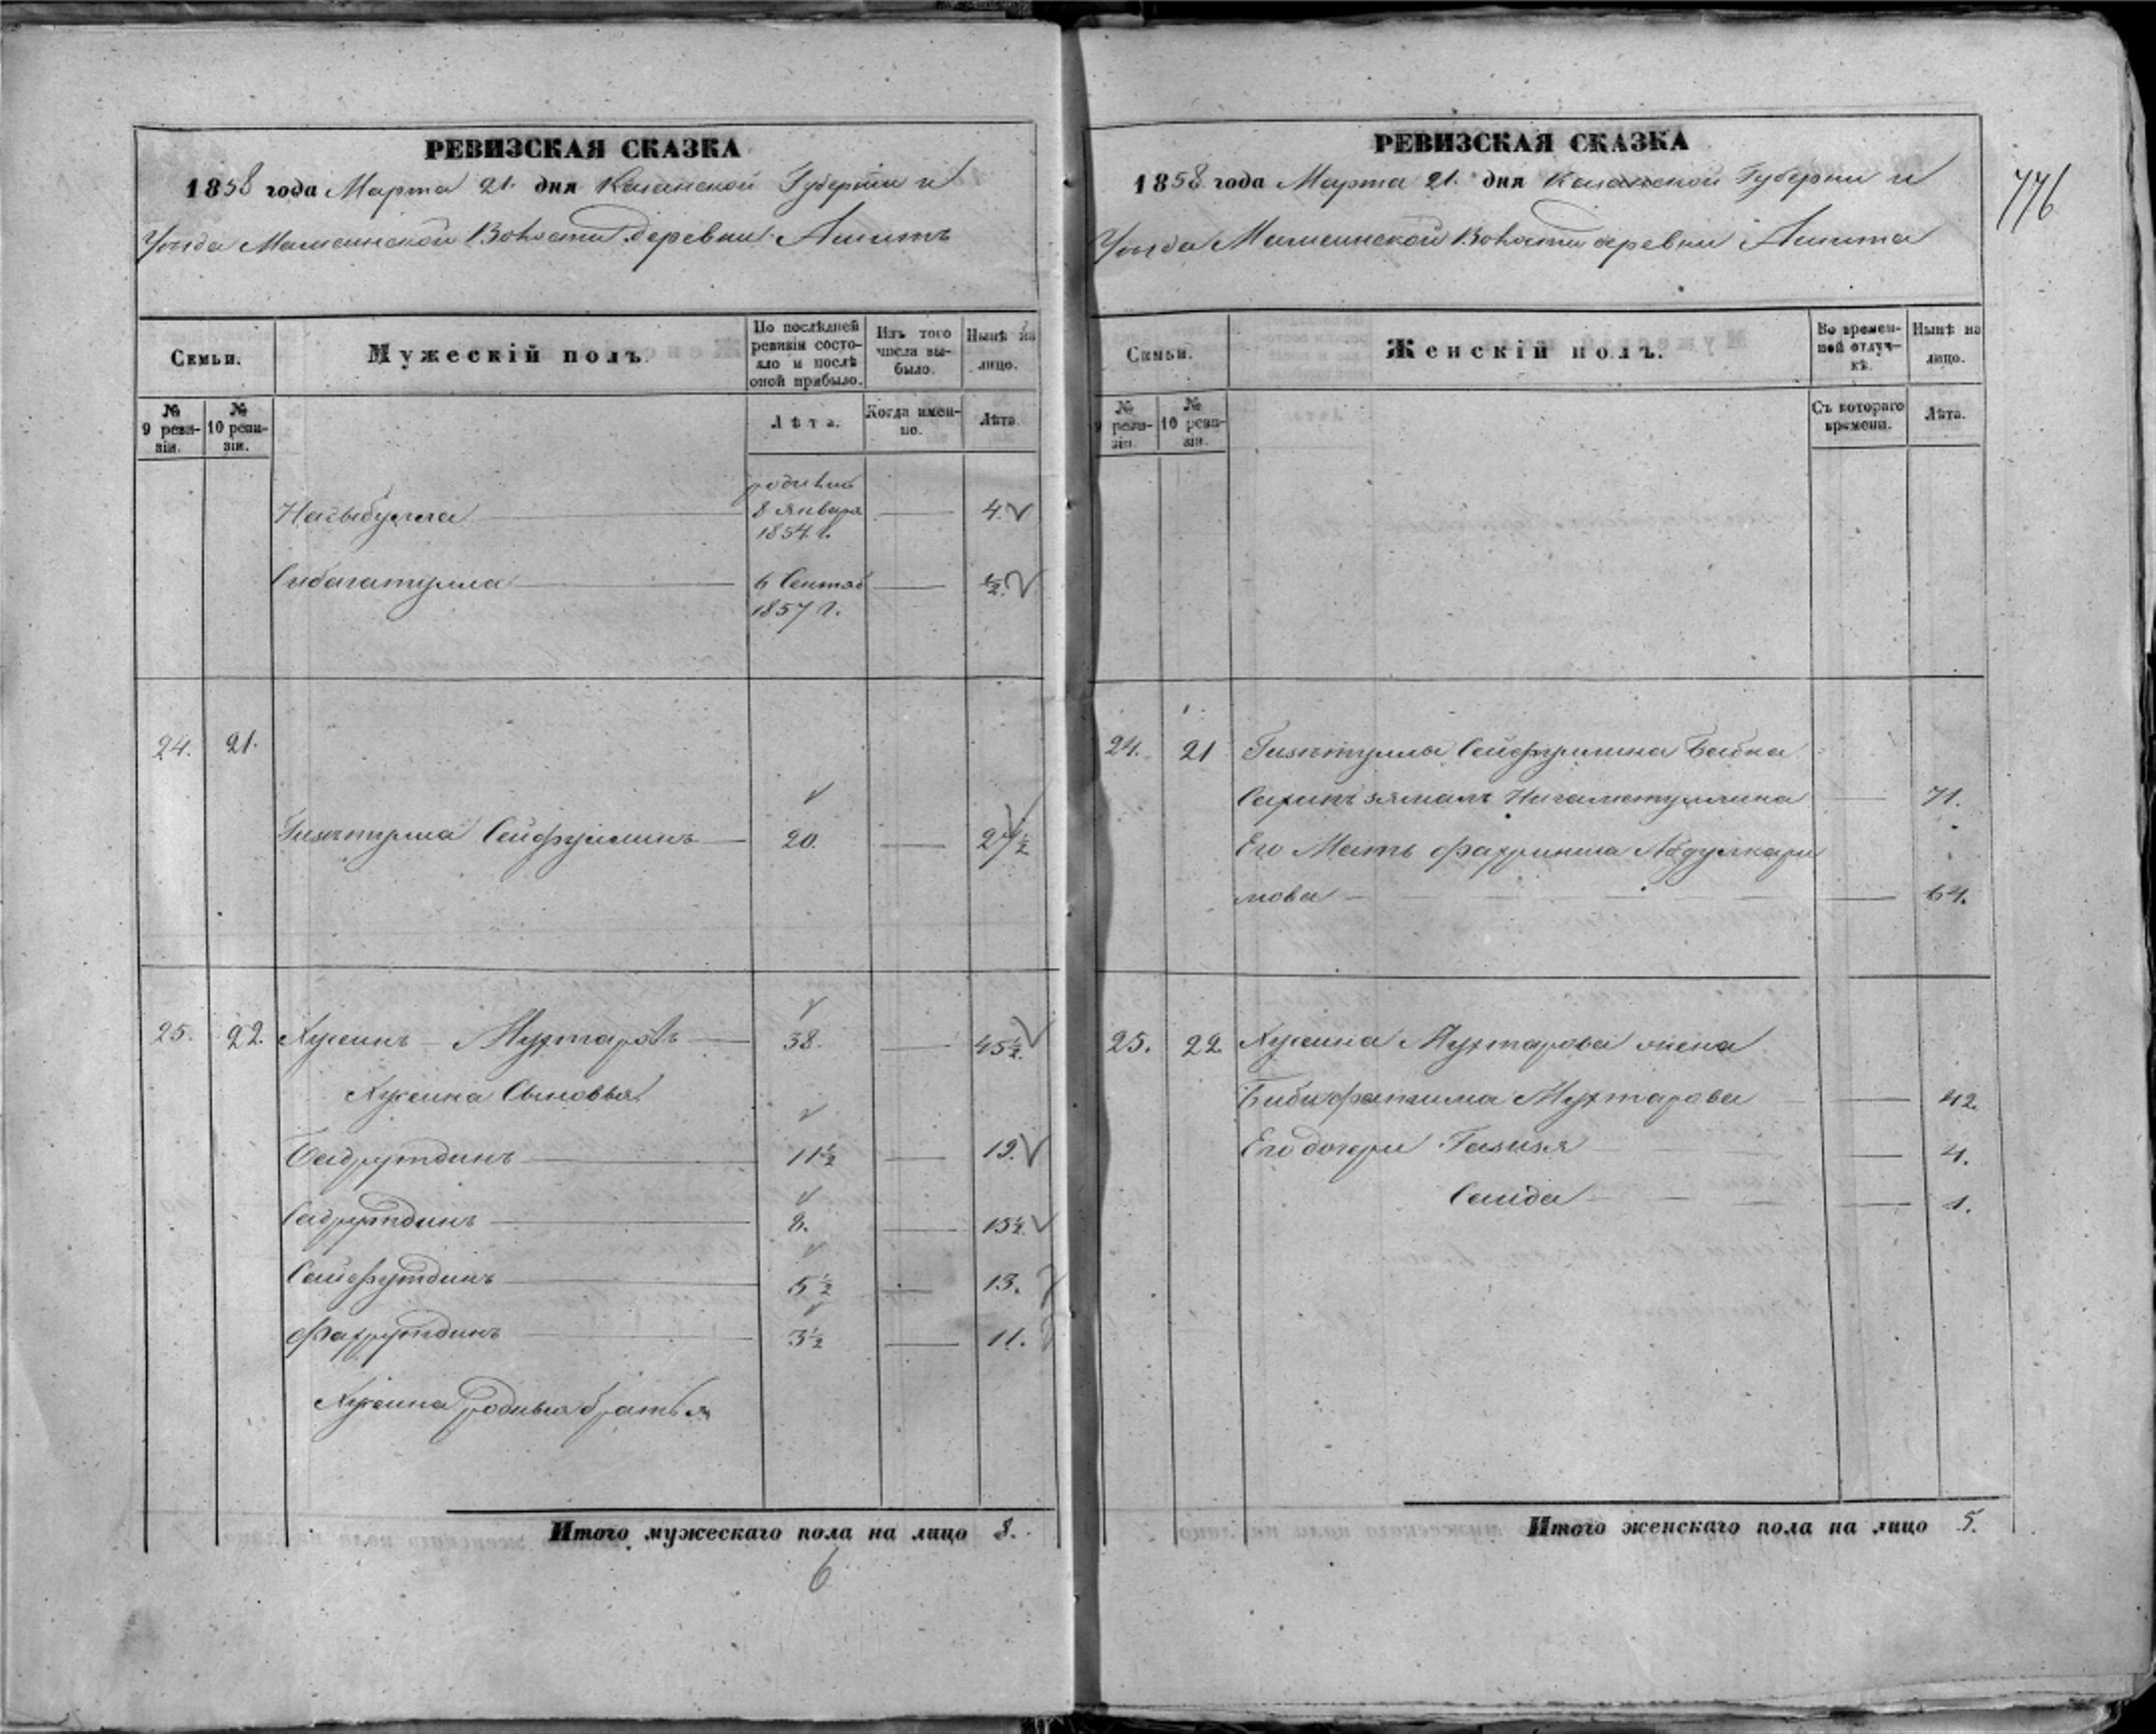 РЕВИЗСКАЯ СКАЗКА
1858 года Марта 21. дня Казанской Губернiи и
Уѣзда Мамсинской Волости деревни Ашитъ
Семьи.
Мужескiй полъ.
По послѣдней ревизiи состояло и послѣ оной прибыло.
Изъ того числа выбыло.
Нынѣ на лицо.
№ 9 ревизiи.
№ 10 ревизiи.
Лѣта.
Когда именно.
Лѣта.
родился
Нагыбулла 8 Января 4.
1854 г.
Сибагатулла 6 Сентяб ½.
1857 г.
24. 21.
Гизятулла Сейфуллинъ 20. 27½
25. 22. Хусеинъ Мухтаровъ 38. 45½.
Хусеина Сыновья
Бадрутдинъ 11½ 19.
Садрутдинъ 8. 15½.
Сайфутдинъ 5½ 13.
Фахрутдинъ 3½ 11.
Хусеина родныя братья
Итого мужескаго пола на лицо 8.
6
776
РЕВИЗСКАЯ СКАЗКА
1858 года Марта 21. дня Казанской Губернiи и
Уѣзда Мамсинской Волости деревни Ашита
Семьи.
Женскiй полъ.
Во временной отлучкѣ.
Нынѣ на лицо.
№ 9 ревизiи.
№ 10 ревизiи.
Съ котораго времени.
Лѣта.
24. 21 Гизятуллы Сейфуллина Бабка
Нигаметуллина 71.
Его Мать Абдулкари
мова 64.
25. 22. Хусеина Мухтарова жена
Бибифатима Мухтарова 42.
Его дочери Газизя 4.
Саида 1.
Итого женскаго пола на лицо 5.